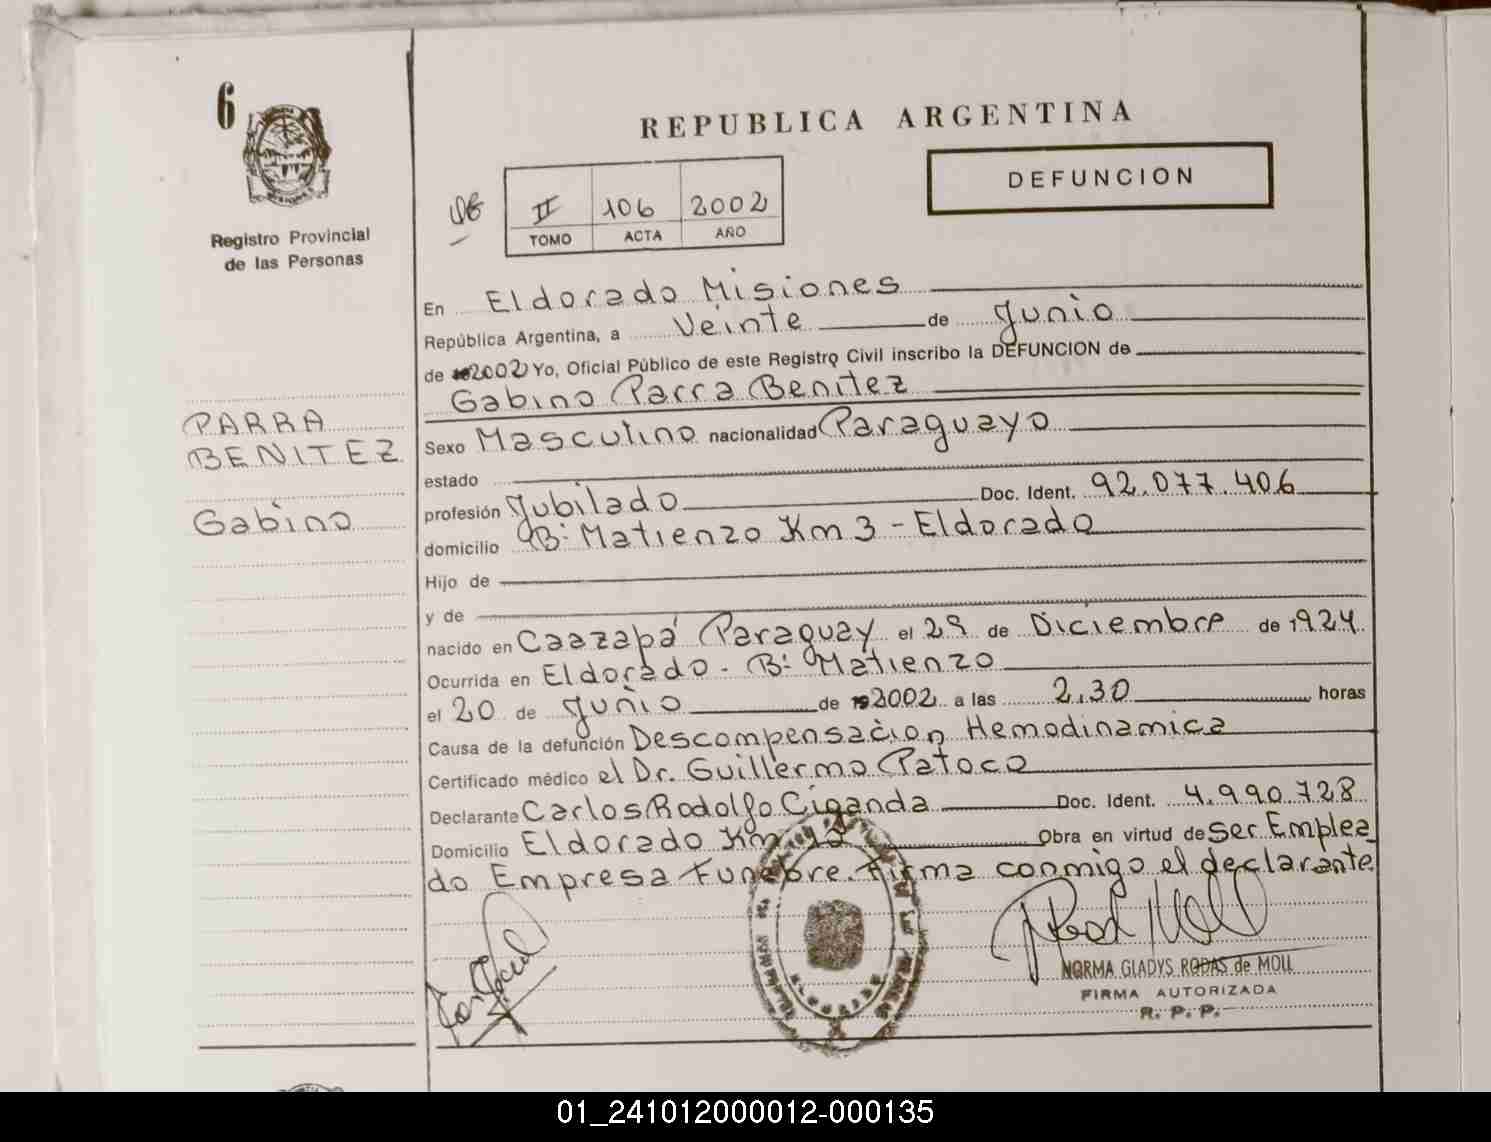 6
REPUBLICA ARGENTINA
DEFUNCION
II 106 2002
TOMO ACTA AÑO
Registro Provincial
de las Personas
En Eldorado Misiones
República Argentina, a Veinte de Junio
de 2002 Yo, Oficial Público de este Registro Civil inscribo la DEFUNCION de
Gabino Parra Benitez
PARRA
BENITEZ
Gabino
Sexo Masculino nacionalidad Paraguayo
estado
profesión Jubilado Doc. Ident. 92.077.406
domicilio Bº Matienzo Km 3 - Eldorado
Hijo de
y de
nacido en Caazapá Paraguay el 29 de Diciembre de 1924
Ocurrida en Eldorado - Bº Matienzo
el 20 de Junio de 2002 a las 2.30 horas
Causa de la defunción Descompensaciòn Hemodinamica
Certificado médico el Dr. Guillermo Patoco
Declarante Carlos Rodolfo Ciganda Doc. Ident. 4.990.728
Domicilio Eldorado Km Obra en virtud de ser Emplea
do Empresa Funebre. Firma conmigo el declarante.
NORMA GLADYS RODAS de MOLL
FIRMA AUTORIZADA
R. P. P.
01_241012000012-000135